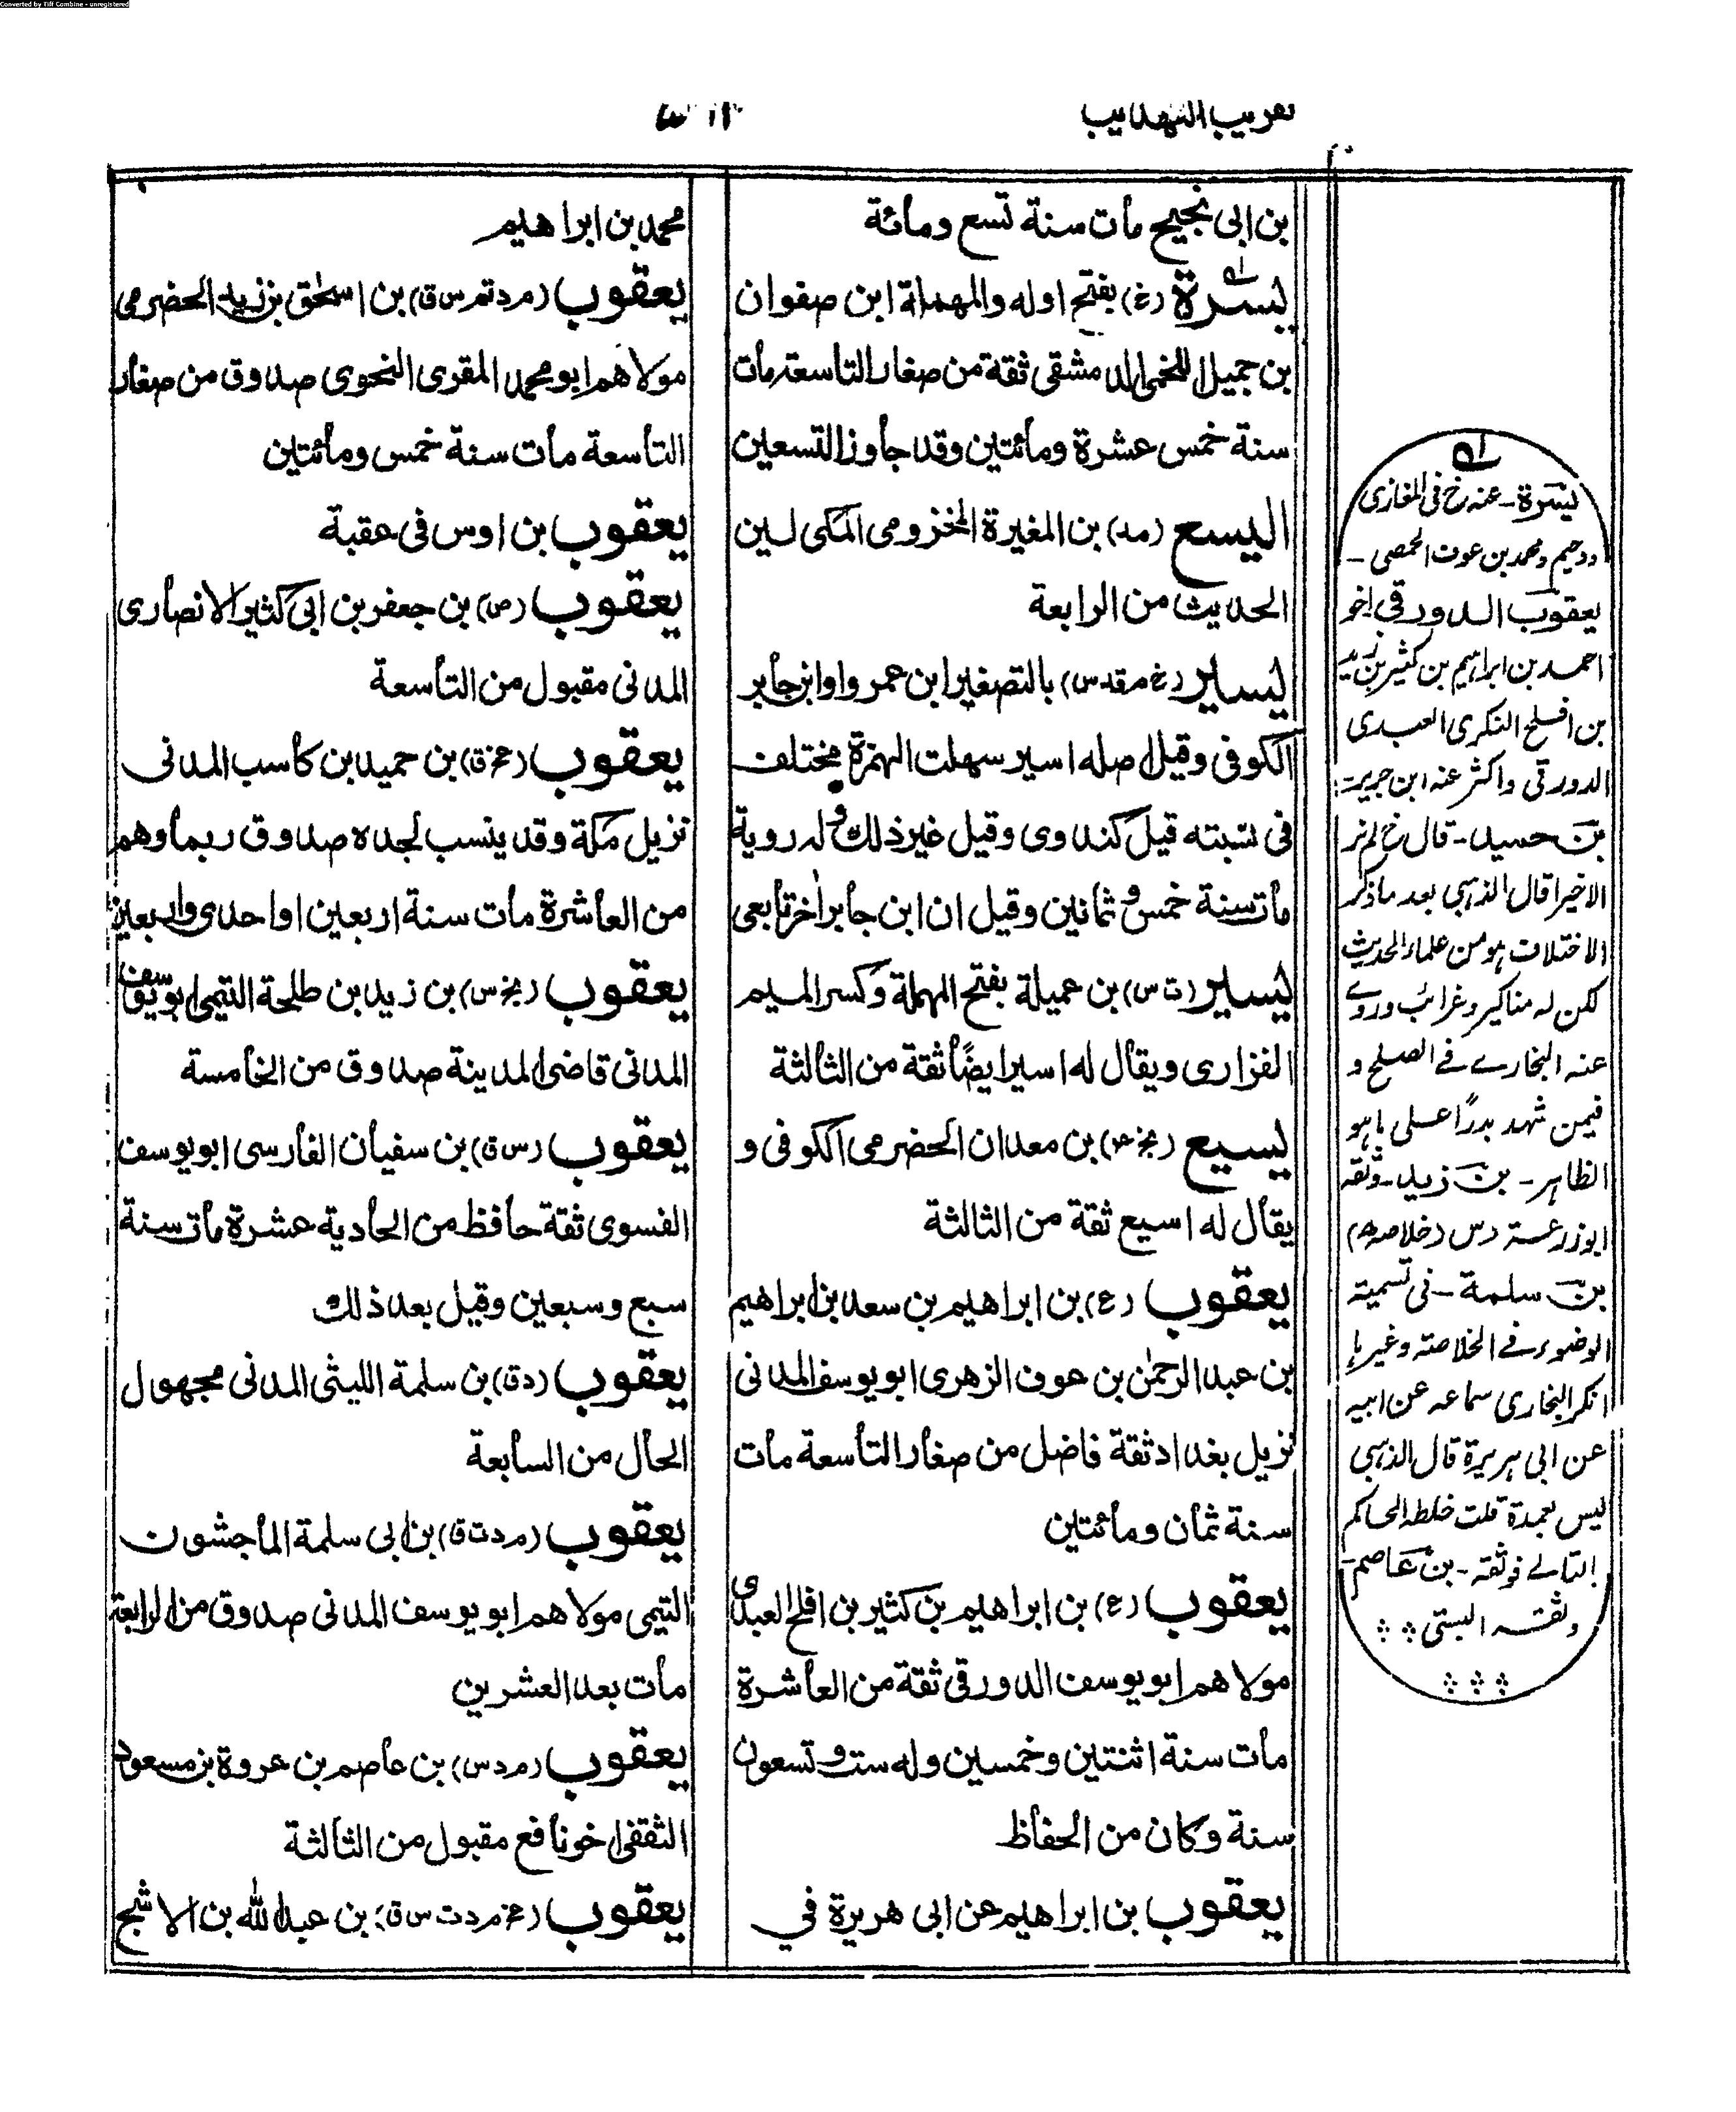 Converted by Tiff Combine - unregistered
تقريب التهذيب
بن ابى نجيح مات سنة تسع ومائة
يسرة (خ) بفتح اوله والمهملة ابن صفوان
بن جميل اللخمى الدمشقى ثقة من صغار التاسعة مات
سنة خمس عشرة ومائتين وقد جاوز التسعين
اليسع (مد) بن المغيرة المخزومى المكى لين
الحديث من الرابعة
يسير (خ م قد س) بالتصغير ابن عمرو او ابن جابر
الكوفى وقيل اصله اسير سهلت الهمزة مختلف
فى نسبته قيل كندوى وقيل غير ذلك وله روية
مات سنة خمس وثمانين وقيل ان ابن جابر اخر تابعى
يسير (ت س) بن عميلة بفتح المهملة وكسر الميم
الفزارى ويقال له اسير ايضًا ثقة من الثالثة
يسيع (بخ عه) بن معدان الحضرمى الكوفى و
يقال له اسيع ثقة من الثالثة
يعقوب (ع) بن ابراهيم بن سعد بن ابراهيم
بن عبد الرحمٰن بن عوف الزهرى ابو يوسف المدنى
نزيل بغداد ثقة فاضل من صغار التاسعة مات
سنة ثمان ومائتين
يعقوب (ع) بن ابراهيم بن كثير بن افلح العبدى
مولاهم ابو يوسف الدورقى ثقة من العاشرة
مات سنة اثنتين وخمسين وله ست وتسعون
سنة وكان من الحفاظ
يعقوب بن ابراهيم عن ابى هريرة في
محمد بن ابراهيم
يعقوب (م د تم س ق) بن اسحٰق بن زيد الحضرمى
مولاهم ابو محمد المقرى النحوى صدوق من صغار
التاسعة مات سنة خمس ومائتين
يعقوب بن اوس فى عقبة
يعقوب (ص) بن جعفر بن ابى كثير الانصارى
المدنى مقبول من التاسعة
يعقوب (عخ ق) بن حميد بن كاسب المدنى
نزيل مكة وقد ينسب لجده صدوق ربما وهم
من العاشرة مات سنة اربعين او احدى واربعين
يعقوب (بخ س) بن زيد بن طلحة التيمى ابو يوسف
المدنى قاضى المدينة صدوق من الخامسة
يعقوب (س ق) بن سفيان الفارسى ابو يوسف
الفسوى ثقة حافظ من الحادية عشرة مات سنة
سبع وسبعين وقيل بعد ذلك
يعقوب (د ق) بن سلمة الليثى المدنى مجهول
الحال من السابعة
يعقوب (م د ت ق) بن ابى سلمة الماجشون
التيمى مولاهم ابو يوسف المدنى صدوق من الرابعة
مات بعد العشرين
يعقوب (م د س) بن عاصم بن عروة بن مسعود
الثقفى اخو نافع مقبول من الثالثة
يعقوب (عخ م د ت س ق) بن عبد الله بن الاشج
يسرة - عنه خ فى المغازى
ودحيم ومحمد بن عوف الحمصى -
يعقوب الدورقى اخو
احمد بن ابراہیم بن کثیر بن زید
بن افلح النکری العبدی
الدورقی واکثر عنه ابن جریر
بن حميد - قال خ لم نر
الا خيرا قال الذہبی بعد ما ذکر
الاختلاف ہو من علماء الحدیث
لکن له مناکیر وغرائب وروے
عنه البخارے فے الصلح و
فیمن شهد بدرًا علی ما ہو
الظاہر - بن زيد - وثقه
ابو زرعة دس (خلاصه)
بن سلمة - فى تسمية
الوضوء فے الخلاصة وغیرہا
انکر البخاری سماعه عن ابیه
عن ابی ہریرة قال الذہبی
لیس بعمدة قلت خلطه الحاکم
بن عاصم -
وثقه البستی